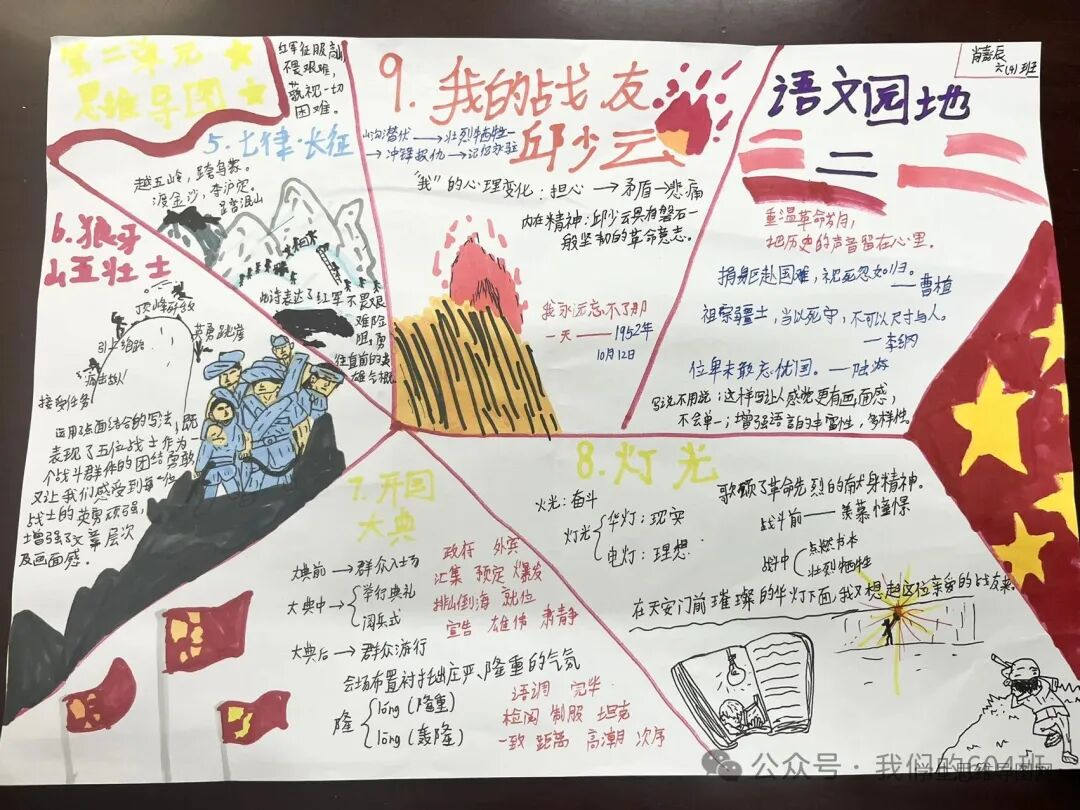 第二单元
思维导图
红军征服高山
不畏艰难,
藐视一切
困难。
5.七律·长征
越五岭,跨乌蒙。
渡金沙,夺泸定。
此诗表达了红军不畏艰
难险
阻,勇
往直前的英
雄气概。
6.狼牙
山五壮士
顶峰歼敌
英勇跳崖
引上绝路
痛击敌人
接受任务
运用了点面结合的写法,既
表现了五位战士作为一
个战斗群体的团结勇敢
又让我们感受到每一位
战士的英勇顽强,
增强了文章层次
及画面感。
9.我的战友
邱少云
山沟潜伏→壮烈牺牲
→冲锋报仇→记忆永驻
“我”的心理变化:担心→矛盾→悲痛
内在精神:邱少云具有磐石一
般坚韧的革命意志。
我永远忘不了那
一天——1952年
10月12日
六(4)班
语文园地
二
重温革命岁月,
把历史的声音留在心里。
捐躯赴国难,视死忽如归。
——曹植
祖宗疆土,当以死守,不可以尺寸与人。
—李纲
位卑未敢忘忧国。—陆游
写说不用说:这样写让人感觉更有画面感,
不会单一;增强语言的丰富性,多样性。
7.开国
大典
大典前→群众入场
大典中→举行典礼
阅兵式
大典后→群众游行
会场布置衬托出庄严、隆重的气氛
隆 lóng(隆重)
lōng(轰隆)
政府 外宾
汇集 预定 爆发
排山倒海 就位
宣告 雄伟 肃静
语调 完毕
检阅 制服 坦克
一致 距离 高潮 次序
8.灯光
火光:奋斗
灯光 华灯:现实
电灯:理想
歌颂了革命先烈的献身精神。
战斗前——羡慕憧憬
战中 点燃书本
壮烈牺牲
在天安门前璀璨的华灯下面,我又想起这位亲爱的战友来。
公众号·我们的604班